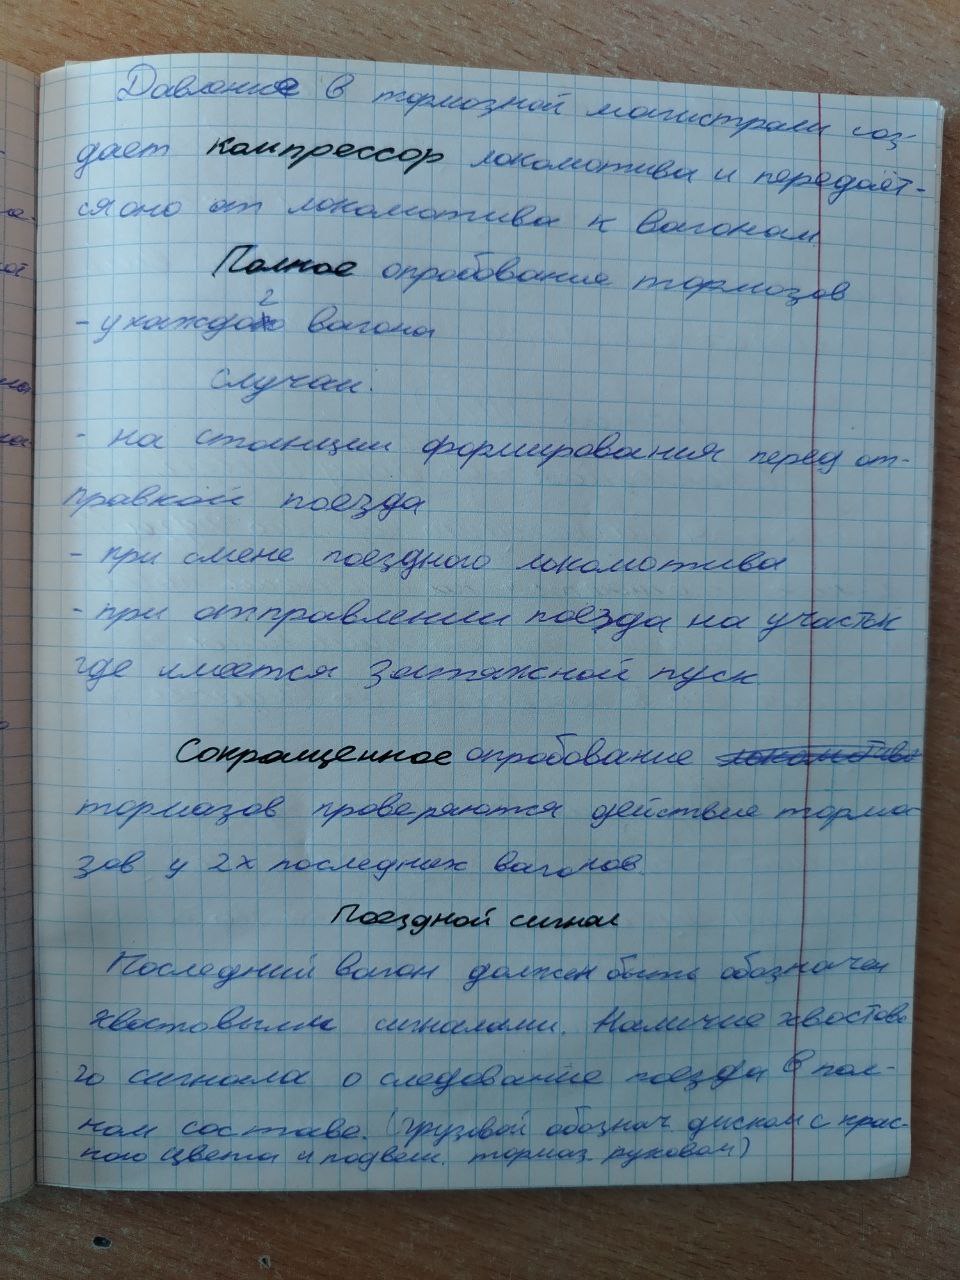 Давление в тормозной магистрали соз-
дает компрессор локомотива и передаёт-
ся оно от локомотива к вагонам
Полное опробование тормозов
- у каждого вагона
Случаи:
- на станции формирования перед от-
правкой поезда
- при смене поездного локомотива
- при отправлении поезда на участок
где имеется затяжной пуск
Сокращенное опробование
тормазов проверяются действие тормо
зов у 2х последних вагонов.
Поездной сигнал
Последний вагон должен быть обозначен
хвостовыми сигналами. Наличие хвостово
го сигнала о следование поезда в пол-
ном составе. (грузвой обознач. диском с крас-
ного цвета и подвеш. тормаз. рукавом)